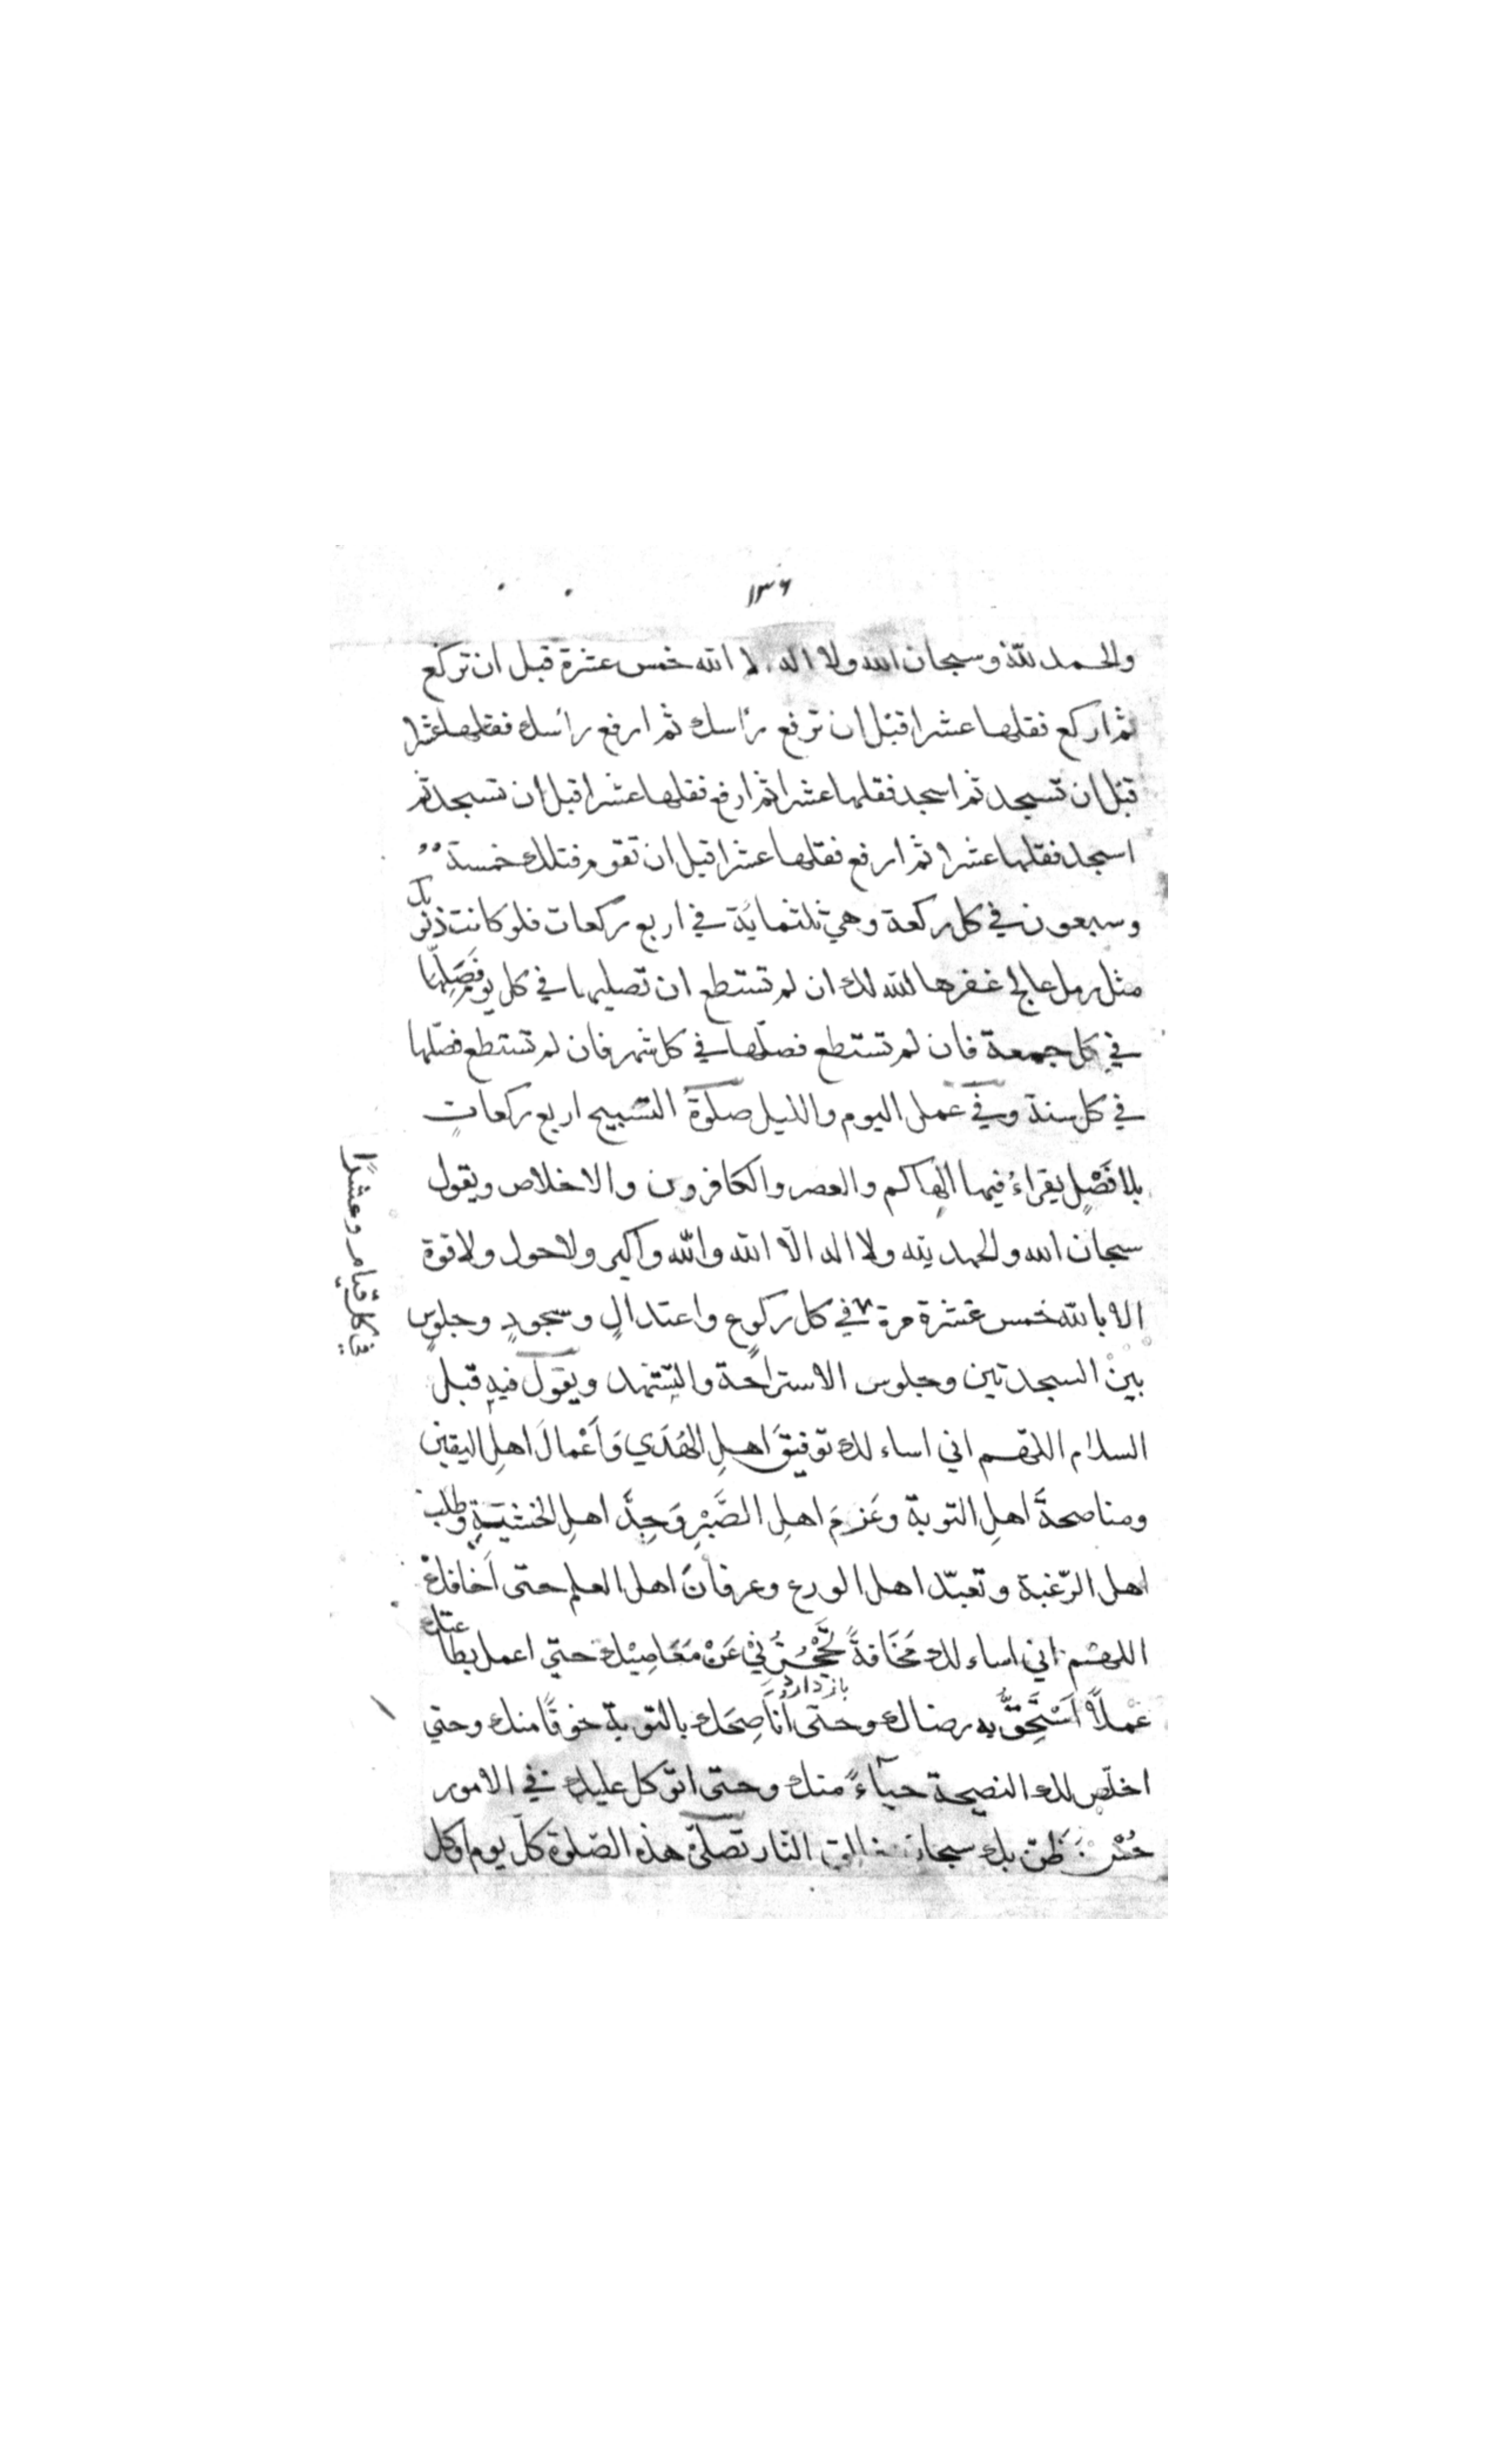 ١٣٦
والحمد لله وسبحان الله ولا اله الا الله خمس عشرة قبل ان تركع
ثم اركع فقلها عشرا قبل ان ترفع رأسك ثم ارفع رأسك فقلها عشرا
قبل ان تسجد ثم اسجد فقلها عشرا ثم ارفع فقلها عشرا قبل ان تسجد ثم
اسجد فقلها عشرا ثم ارفع فقلها عشرا قبل ان تقوم فتلك خمسة
وسبعون في كل ركعة وهي ثلثمائة في اربع ركعات فلو كانت ذنوبك
مثل رمل عالج غفرها الله لك ان لم تستطع ان تصليها في كل يوم فَصَلِّهَا
في كل جمعة فان لم تستطع فصلّها في كل شهر فان لم تستطع فصلّها
في كل سنة وفي عمل اليوم والليل صلوة التسبيح اربع ركعاتٍ
بلا فَصْلٍ يقراءُ فيها الهاكم والعصر والكافرون والاخلاص ويقول
سبحان الله والحمد لله ولا اله الّا الله والله واكبر ولا حول ولا قوة
الا بالله خمس عشرة مرة في كل ركوعٍ واعتدالٍ وسجودٍ وجلوسٍ
في كل قيام وعشرًا
بين السجدتين وجلوس الاستراحة والتشهد ويقول فيه قبل
السلام اللهم اني اساء لك توفيقَ اهلِ الهُدَي وَاَعْمالَ اهلِ اليقين
ومناصحةَ اهلِ التوبة وعَزمَ اهلِ الصَّبْرِ وَجِدَّ اهلِ الخشيَةِ وطلب
اهل الرّغبة وتعبّد اهل الورع وعرفانَ اهل العلم حتى اَخافكْ
اللهم اني اساء لك مَخَافةً تَحْجُزُنِيْ عَنْ مَعَاصِيْك حتي اعمل بطاعتك
باز دارد
عَملاً اَسْتَحِقُّ به رضاك وحتى اُناصِحَك بالتوبة خوفًا منك وحتي
اخلّص لك النصيحة حياءً منك وحتى اتوكل عليك في الامور
حُسْنَ ظَنّ بك سبحان خالق النّار تصلّى هذه الصّلوة كلّ يوم اوكل